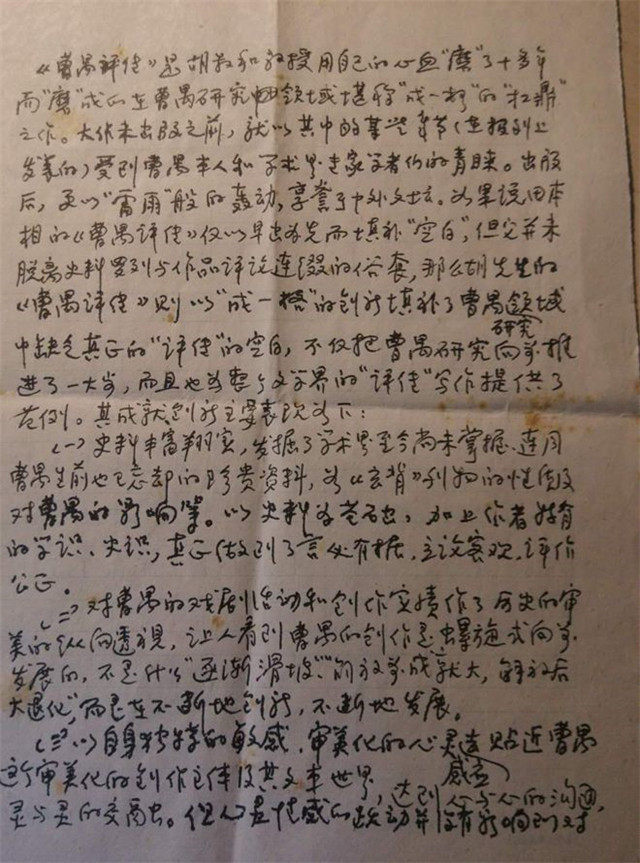 《曹禺评传》是胡叔和教授用自己的心血“磨”了十多年
而“磨”成的在曹禺研究领域堪称“成一格”的“扛鼎”
之作。大作未出版之前，就以其中的某些章节（在报刊上
发表的）受到曹禺本人和学术界专家学者们的青睐。出版
后，更以“雷雨”般的轰动，享誉于中外文坛。如果说田本
相的《曹禺评传》仅以早出为先而填补“空白”，但它并未
脱离史料罗列与作品评论连缀的俗套，那么胡先生的
《曹禺评传》则以“成一格”的创新填补了曹禺研究领域
中缺乏真正的“评传”的空白，不仅把曹禺研究向前推
进了一大步，而且也为整个文学界的“评传”写作提供了
范例。其成就创新主要表现如下：
（一）史料丰富翔实，发掘了学术界至今尚未掌握、连同
曹禺生前也已忘却的珍贵资料，如《玄背》刊物的性质及
对曹禺的影响等。以史料为基石，加上作者特有
的学识、史识，真正做到了言必有据，立论客观，评价
公正。
（二）对曹禺的戏剧活动和创作实绩作了历史的审
美的纵向透视，让人看到曹禺的创作是螺旋式向前
发展的，不是什么“逐渐滑坡”、“解放前成就大，解放后
大退化”，而是在不断地创新，不断地发展。
（三）以自身独特的敏感，审美化的心灵去贴近曹禺
这个审美化的创作主体及其文本世界，达到心与心的沟通，
灵与灵的交融。但心灵情感的跃动并没有影响到对
感应